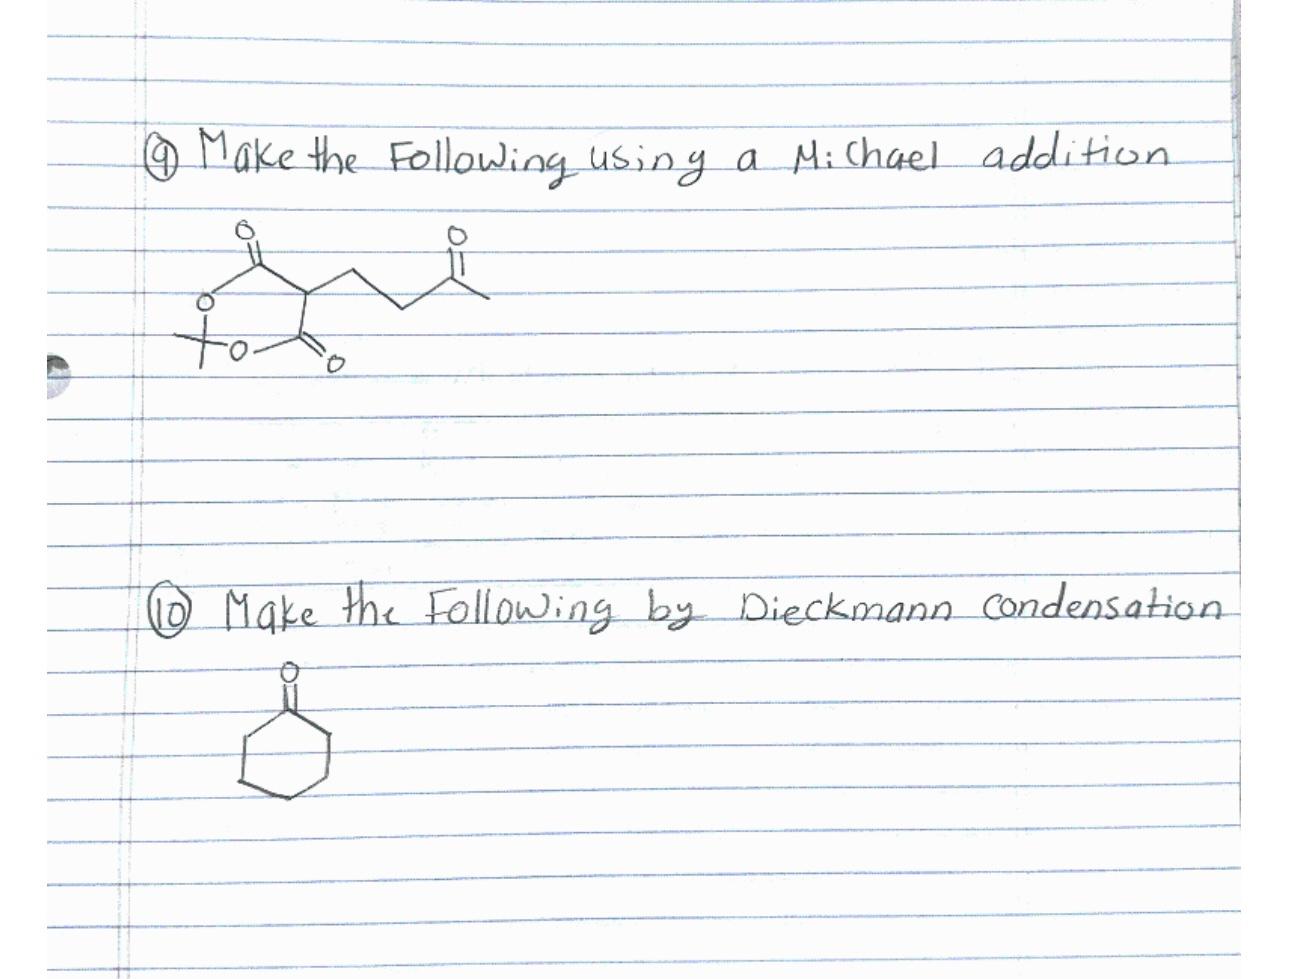 ⑨ Make the Following using a Michael addition
O
O
O
O
O
⑩ Make the Following by Dieckmann Condensation
O